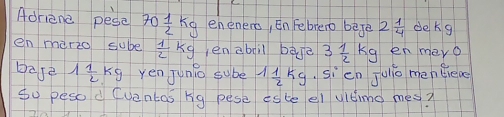 Adriana pesa 70 1/2 Kg en enero, En febrero baja 2 1/4 de kg
en marzo sube 1/2 kg, en abril baja 3 1/2 kg en mayo
baja 1 1/2 kg y en junio sube 1 1/2 kg. si en julio mantiene
su peso ¿Cuantos kg pesa este el ultimo mes?